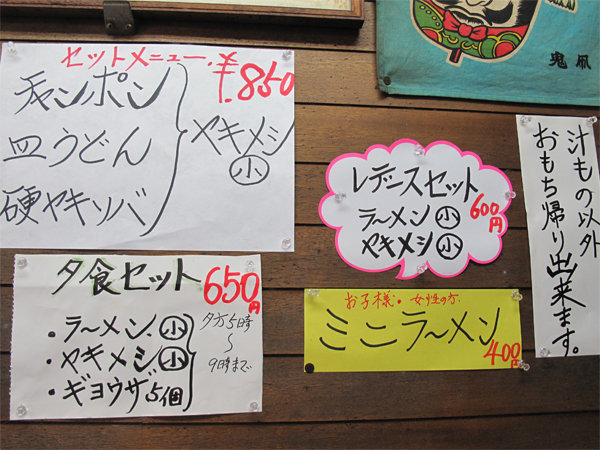 セットメニュー ¥850
チャンポン
皿うどん
硬ヤキソバ
ヤキメシ
小
鬼凧
レディースセット
ラーメン 小
ヤキメシ 小
600円
汁もの以外
おもち帰り出来ます。
夕食セット 650円
・ラーメン 小
・ヤキメシ 小
・ギョウザ5個
夕方5時
〜
9時まで
お子様・女性の方
ミニラーメン
400円